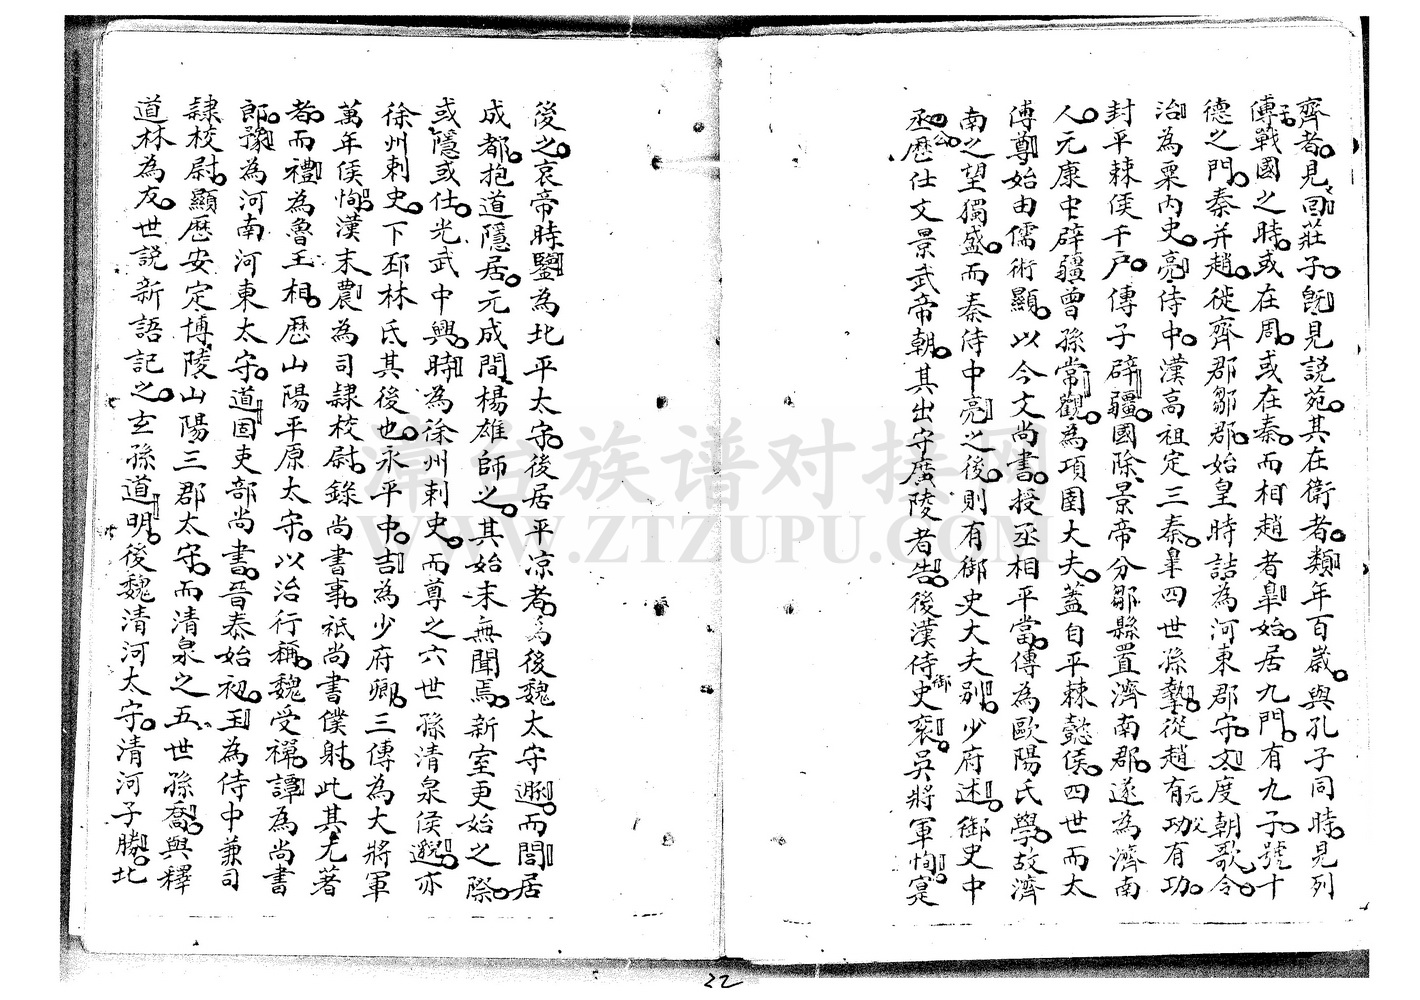 齊者見囘莊子旣見説苑其在衛者類年百歲與孔子同時見列
傳戰國之時或在周或在秦而相趙者臯始居九門有九子號十
德之門秦并趙徙齊郡鄒郡始皇時詰為河東郡守文度朝歌令
治為粟内史亮侍中漢高祖定三秦臯四世孫墊從趙有功有功
封平棘侯千戶傳子辟疆國除景帝分鄒縣置濟南郡遂為濟南
人元康中辟疆曾孫常觀為項圉大夫蓋自平棘懿侯四世而太
傅尊始由儒術顯以今文尚書授丞相平當傳為歐陽氏學故濟
南之望獨盛而秦侍中亮之後則有御史大夫別少府述御史中
丞歷仕文景武帝朝其出守廣陵者告後漢侍御史裒吳將軍恂寔
後之哀帝時鑒為北平太守後居平凉者為後魏太守遯而閭居
成都抱道隱居元成間楊雄師之其始末無聞焉新室更始之際
或隱或仕光武中興時為徐州刺史而尊之六世孫清泉侯邈亦
徐州刺史下邳林氏其後也永平中吉為少府卿三傳為大將軍
萬年侯恂漢末農為司隸校尉錄尚書事祗尚書僕射此其尤著
者而禮為魯王相歷山陽平原太守以治行稱魏受禪譚為尚書
郎豫為河南河東太守道固吏部尚書晉泰始初玉為侍中兼司
隸校尉顯歷安定博陵山陽三郡太守而清泉之五世孫喬與釋
道林為友世説新語記之玄孫道明後魏清河太守清河子勝北
22
漳台族谱对接网
WWW.ZTZUPU.COM